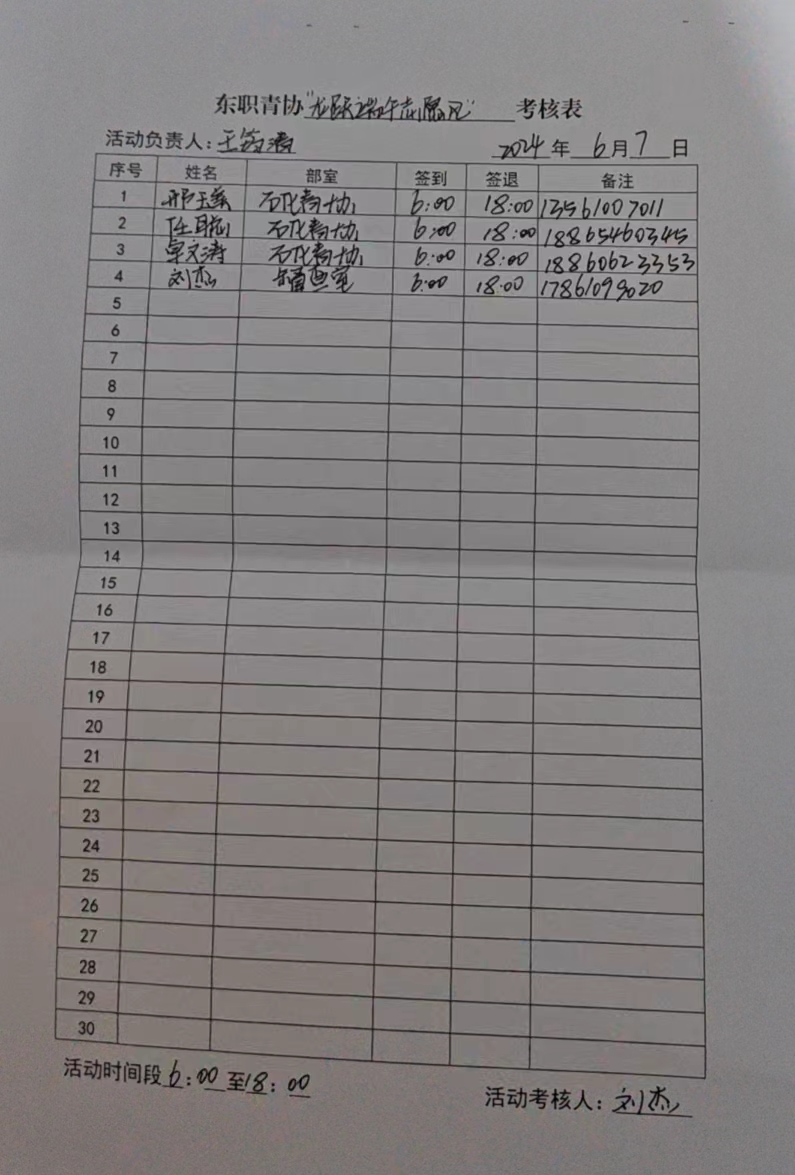 东职青协"龙跃端午志愿风"考核表
活动负责人：王 2024年6月7日
序号 姓名 部室 签到 签退 备注
1 邢玉 石化青协 6:00 18:00 13561007011
2 任 石化青协 6:00 18:00 18865460345
3 卓文涛 石化青协 6:00 18:00 18860623353
4 刘杰 室 6:00 18:00 17861099020
5
6
7
8
9
10
11
12
13
14
15
16
17
18
19
20
21
22
23
24
25
26
27
28
29
30
活动时间段6:00至18:00
活动考核人：刘杰